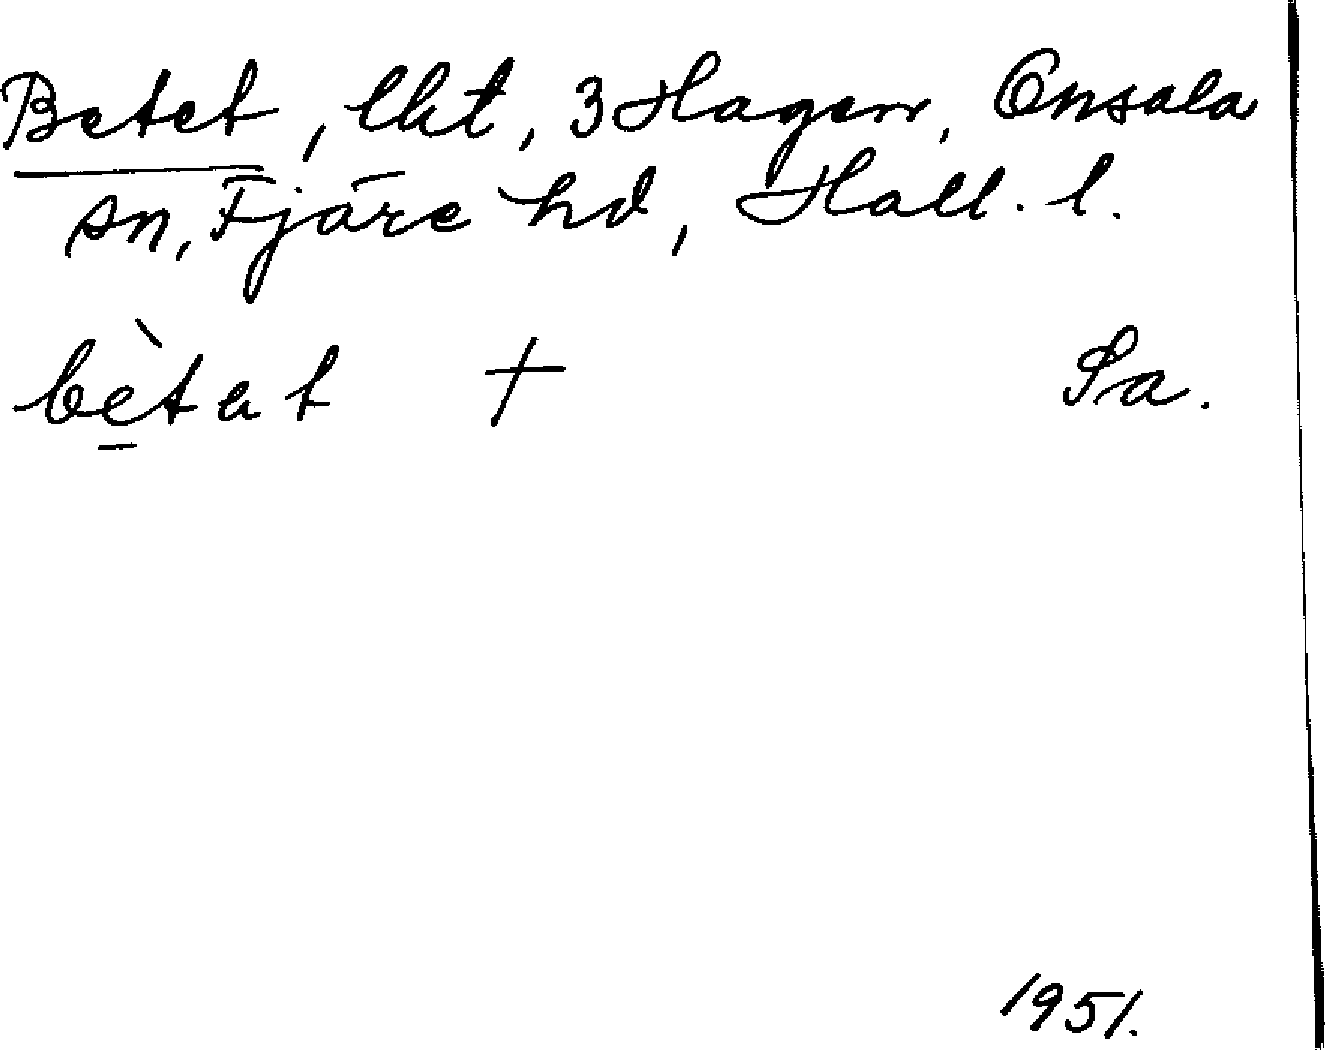 Betet, lht, 3 Hagen, Onsala
sn, Fjäre hd, Hall. l.
bètat + Sa.
1951.